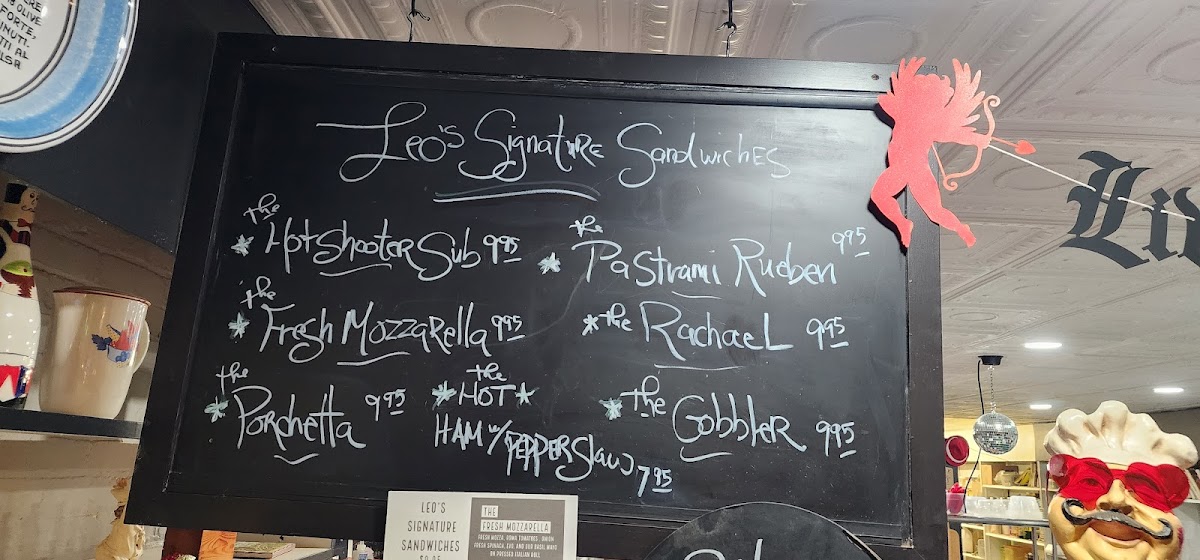 RE
OLIVE
FORTE,
INUTI-
TTI AL
LSA
Leo's Signature Sandwiches
the
* Hot Shooter Sub 9.95
the
* Fresh Mozzarella 9.95
the
* Porchetta 9.95
the
* HOT *
HAM w/ PEPPER Slaw 7.95
the
* Pastrami Rueben 9.95
* the Rachael 9.95
* the Gobbler 9.95
Liv
LEO'S
SIGNATURE
SANDWICHES
THE
FRESH MOZZARELLA
FRESH MOZZ, ROMA TOMATOES, ONION
FRESH SPINACH, EVO, AND OUR BASIL MAYO
ON PRESSED ITALIAN ROLL